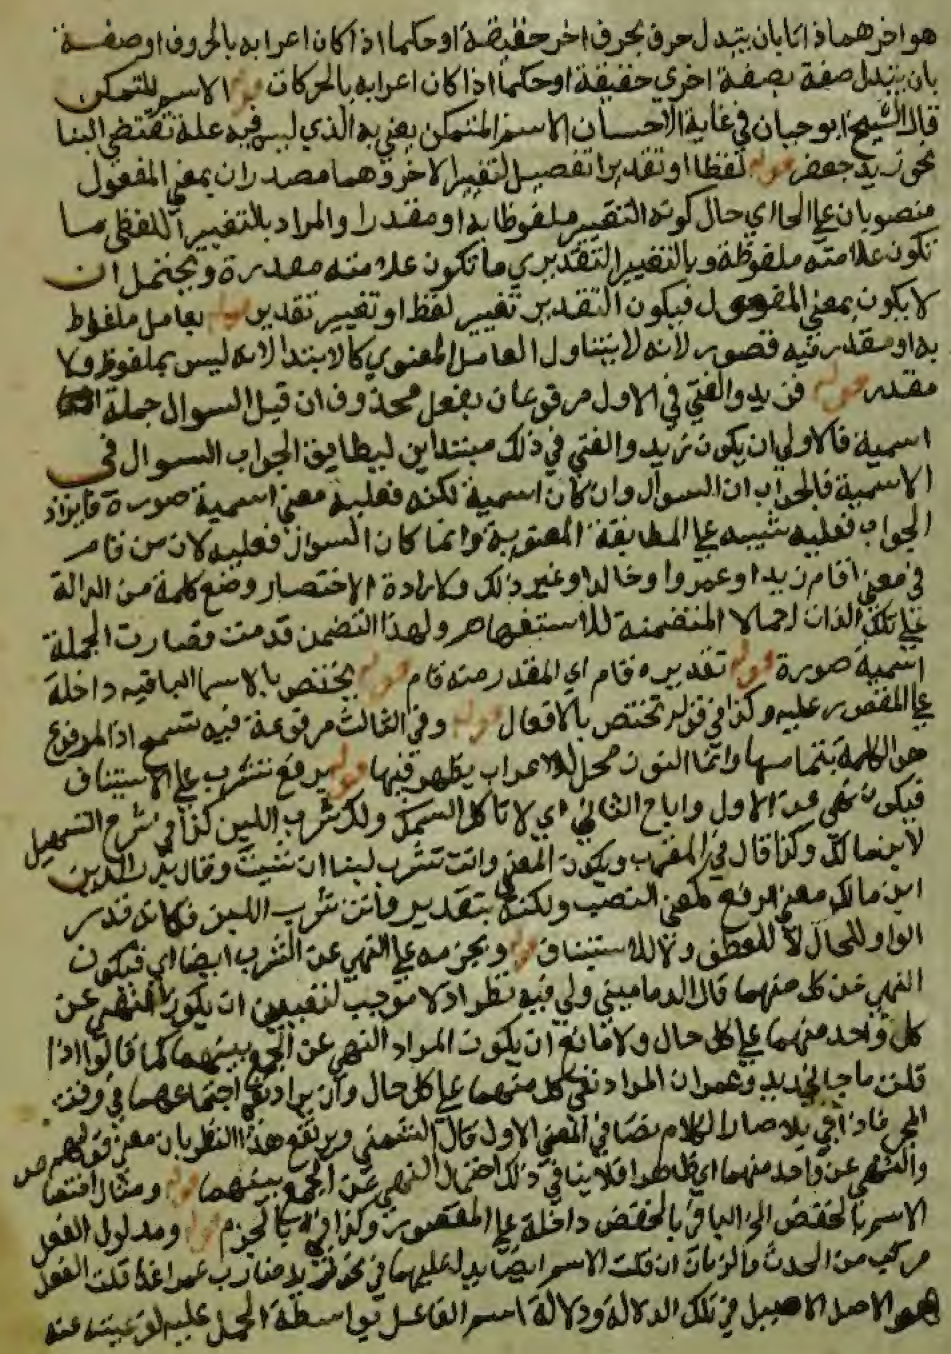 هو اخرهما ذاتا بان يتبدل حرف بحرف اخر حقيقة او حكما اذا كان اعرابه بالحروف او صفة
بان يتبدل صفة بصفة اخري حقيقة او حكما اذا كان اعرابه بالحركات قوله الاسم المتمكن
قال الشيخ ابو حيان في غاية الاحسان الاسم المتمكن يعني به الذي ليس فيه علة تقتضي البنا
نحو زيد وجعفر قوله لفظا او تقديرا تفصيل لتغيير الاخر وهما مصدران بمعني المفعول
منصوبان علي الحال اي حال كون التغيير ملفوظا به او مقدرا والمراد بالتغيير اللفظي ما
تكون علامته ملفوظة وبالتغيير التقديري ما تكون علامته مقدرة ويحتمل ان
لا يكون بمعني المفعول فيكون التقدير تغيير لفظ او تغيير تقدير قوله بعامل ملفوظ
به او مقدر فيه قصور لانه لا يتناول العامل المعنوي كالابتدا لانه ليس بملفوظ ولا
مقدر قوله فزيد والفتي في الاول مرفوعان بفعل محذوف ان قيل السوال جملة
اسمية فالاولي ان يكون زيد والفتي في ذلك مبتداين ليطابق الجواب السوال في
الاسمية فالجواب ان السوال وان كان اسمية لكنه فعلية معني اسمية صورة فايراد
الجواب فعلية تنبيه علي المطابقة المعنوية وانما كان السوال فعلية لان من قام
في معني اقام زيد او عمرو او خالد او غير ذلك ولارادة الاختصار وضع كلمة من الدالة
علي تلك الذات اجمالا المتضمنة للاستفهام ولهذا التضمن قدمت فصارت الجملة
اسمية صورة قوله تقديره قام اي المقدر منه قام قوله يختص بالاسما الباقية داخلة
علي المقصور عليه وكذا في قوله تختص بالافعال قوله وفي الثالث مرفوعة فيه تسمح اذ المرفوع
هو الكلمة بتمامها وانما النون محل للاعراب يظهر فيها قوله برفع تشرب علي الاستيناف
فيكون نهي عن الاول واباح الثاني اي لا تاكل السمك ولك شرب اللبن كذا في شرح التسهيل
لابن مالك وكذا قال في المغرب ويكون المعني وانت تشرب لبنا ان شيت وقال بدر الدين
ابن مالك معني الرفع كمعني النصب ولكنه بتقدير وانت تشرب اللبن فكانه قدر
الواو للحال لا للعطف ولا للاستيناف قوله وبجزمه علي النهي عن الشرب ايضا اي فيكون
النهي عن كل منهما قال الدماميني ولي فيه نظر اذ لا موجب لتعيين ان يكون النهي عن
كل واحد منهما علي كل حال ولا مانع ان يكون المراد النهي عن الجمع بينهما كما قالوا اذا
قلت ما جاني زيد وعمرو ان المراد نفي كل منهما علي كل حال وان يراد نفي اجتماعهما في وقت
المجي فاذا جي بلا صار الكلام نصا في المعني الاول قال الشمني ويرتفع هذا النظر بان معني قولهم
والنهي عن واحد منهما اي ظاهرا فلا ينافي ذلك احتمال النهي عن الجمع بينهما قوله ومثال اختصاص
الاسم بالخفض الي الباقي بالخفض داخلة علي المقصور وكذا في بالجزم قوله ومدلول الفعل
مركب من الحدث والزمان ان قلت الاسم ايضا يدل عليهما في نحو زيد ضارب عمرا غدا قلت الفعل
هو الاصل الاصيل في تلك الدلالة ودلالة اسم الفاعل بواسطة الحمل عليه